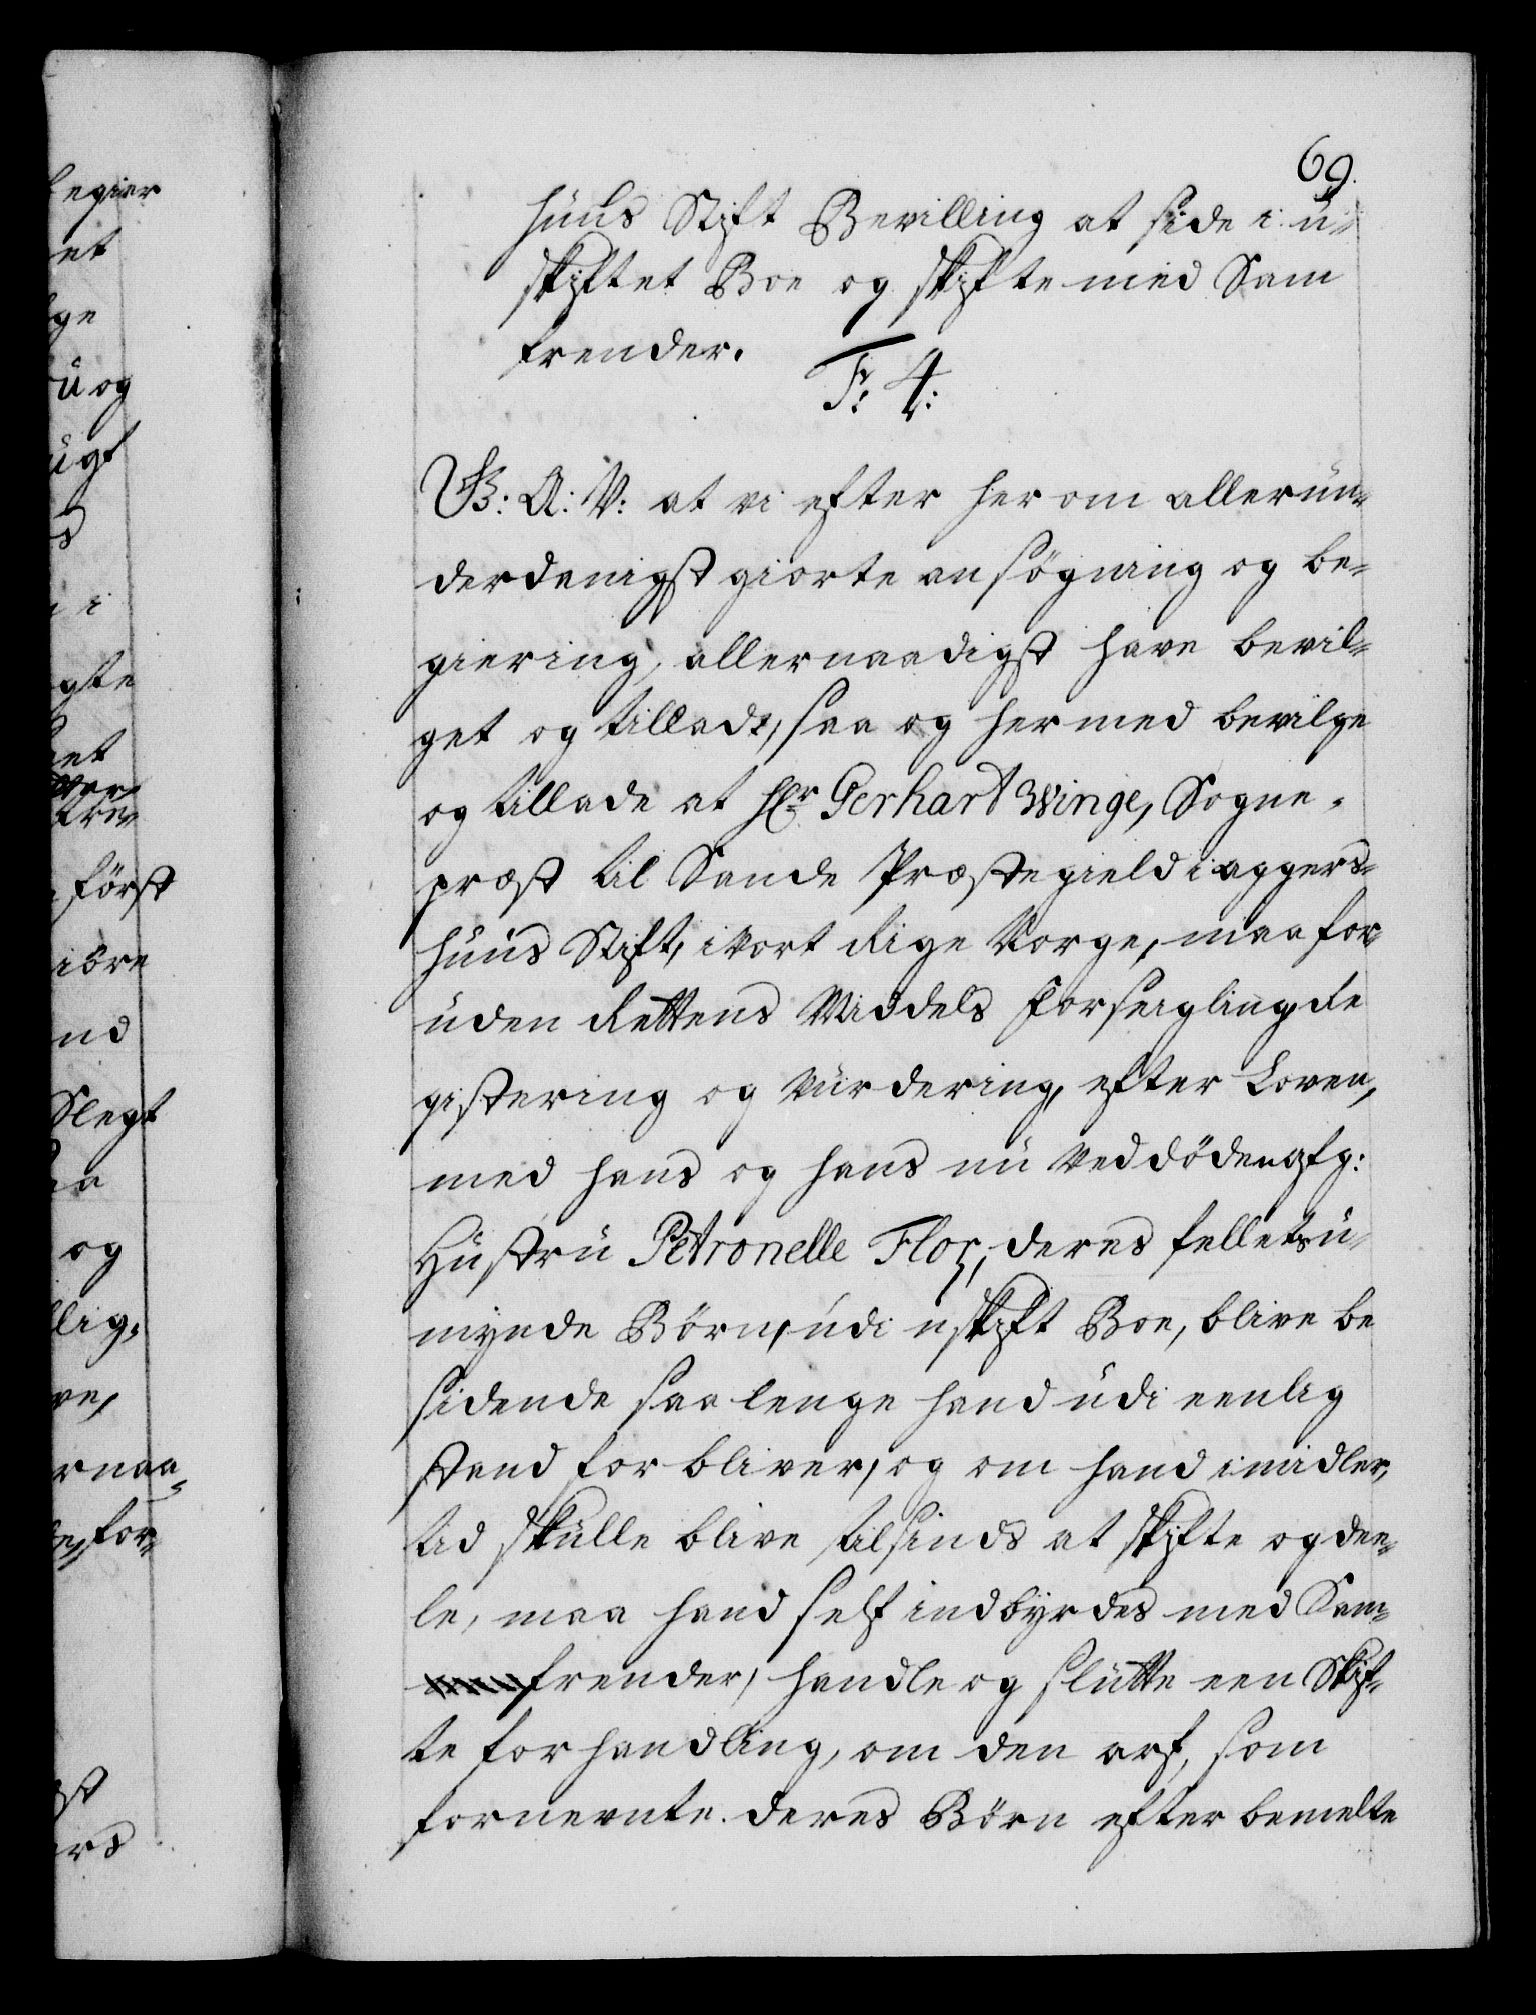 69.
huus Stift Bevilling at side i u-
skiftet Boe og skifte med Sam
frender.
Fr: 4:
G: A: V: at vi efter her om allerun-
derdanigst giorte ansögning og be-
giering, allernaadigst have bevil-
get og tilladt, saa og hermed bevilge
og tillade at Hr Gerhart Winge, Sogne-
præst til Sande Præstegield i aggers-
huus Stift, i Vort Rige Norge, maa for
uden Rettens Middels Forsegling, Re
gistering og Vurdering, efter Loven,
med hans og hans nu ved döden afg:
Hustru Petronelle Flor, deres fellets u-
mynde Börn, udi uskift Boe, blive be
sidende saa lenge hand udi eenlig
stand forbliver, og om hand imidler-
tid skulle blive tilsinds at skifte og dee-
le, maa hand self indbyrdes med Sam-
frender, handle og slutte een Skif-
te forhandling, om den arf, som
fornevnte deres Börn efter bemelte
legier
et
ge
u og
ugt
i
gte
et
först
iöre
nd
Slegt
aa
og
lig,
ve,
rnaa-
for-
st
ers